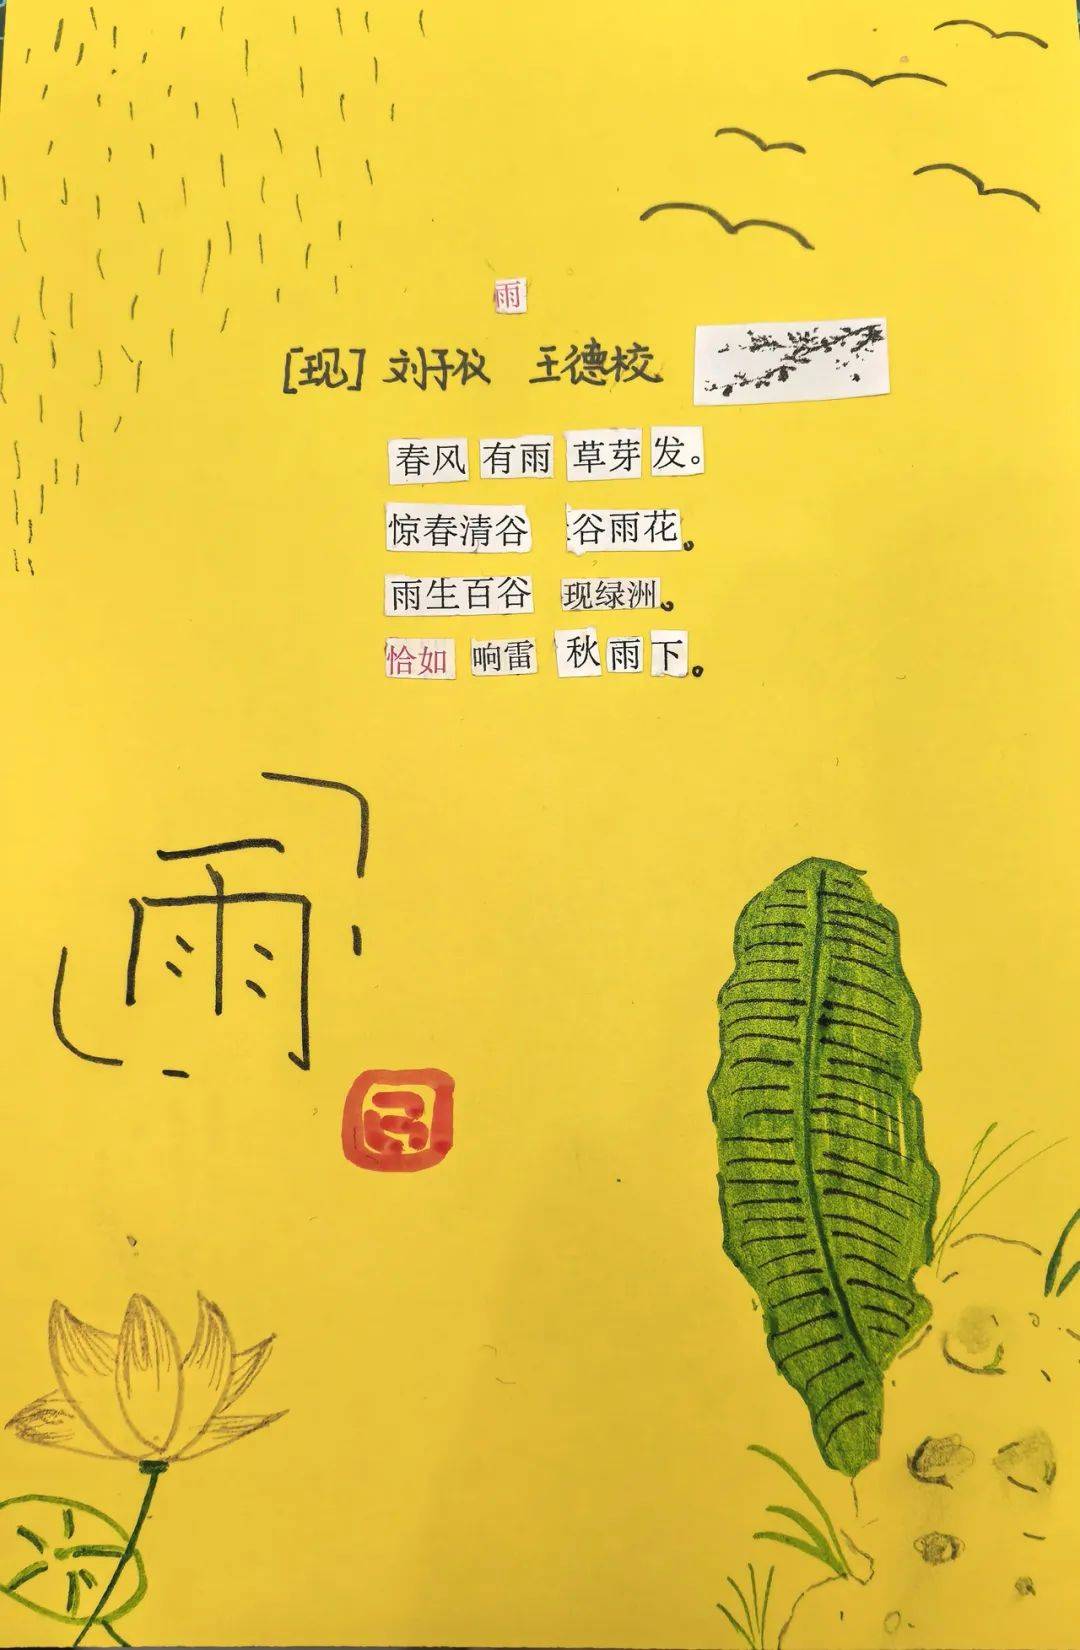 雨
[现] 刘子仪 王德校
春风 有雨 草芽 发。
惊春清谷 谷雨花。
雨生百谷 现绿洲。
恰如 响雷 秋 雨 下。
雨